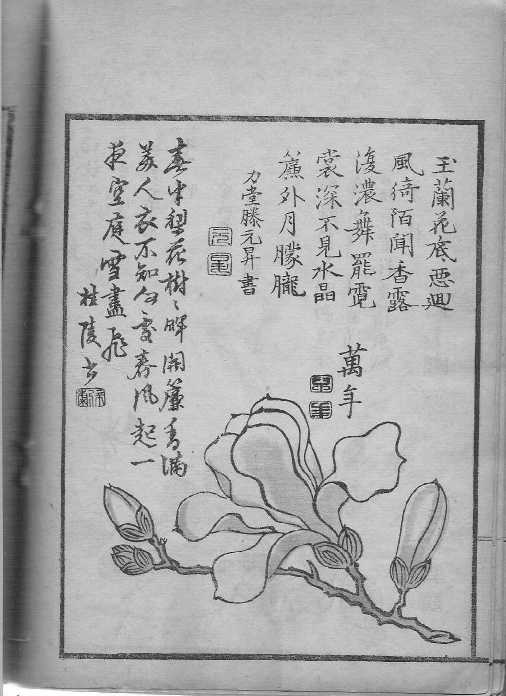 玉蘭花底惡廻
風綺陌聞香露
復濃舞罷霓
裳深不見水晶
簾外月朦朧
力堂滕元昇書
萬年
春半梨花樹〻暉開簾香滿
美人衣不知何處春風起一
夜空庭雪盡飛
桂陵書